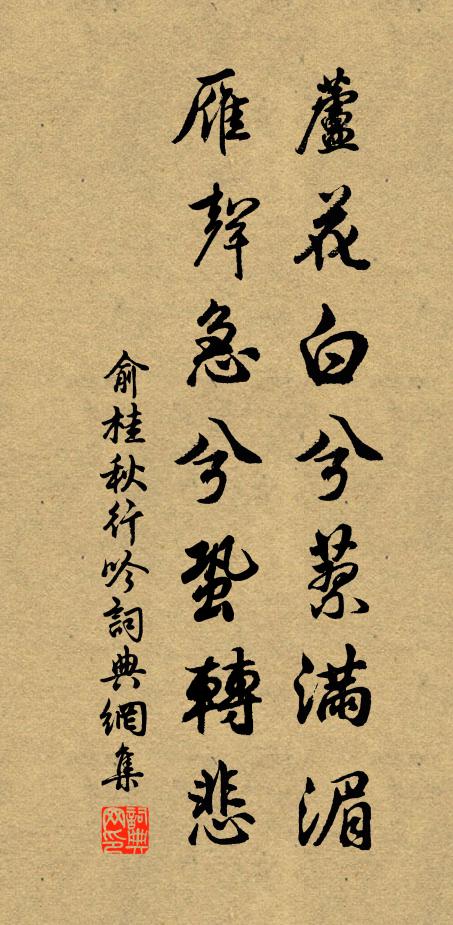 蘆花白兮蓼滿湄
雁聲急兮蛩轉悲
俞桂秋行吟詞典網集
詞典网印